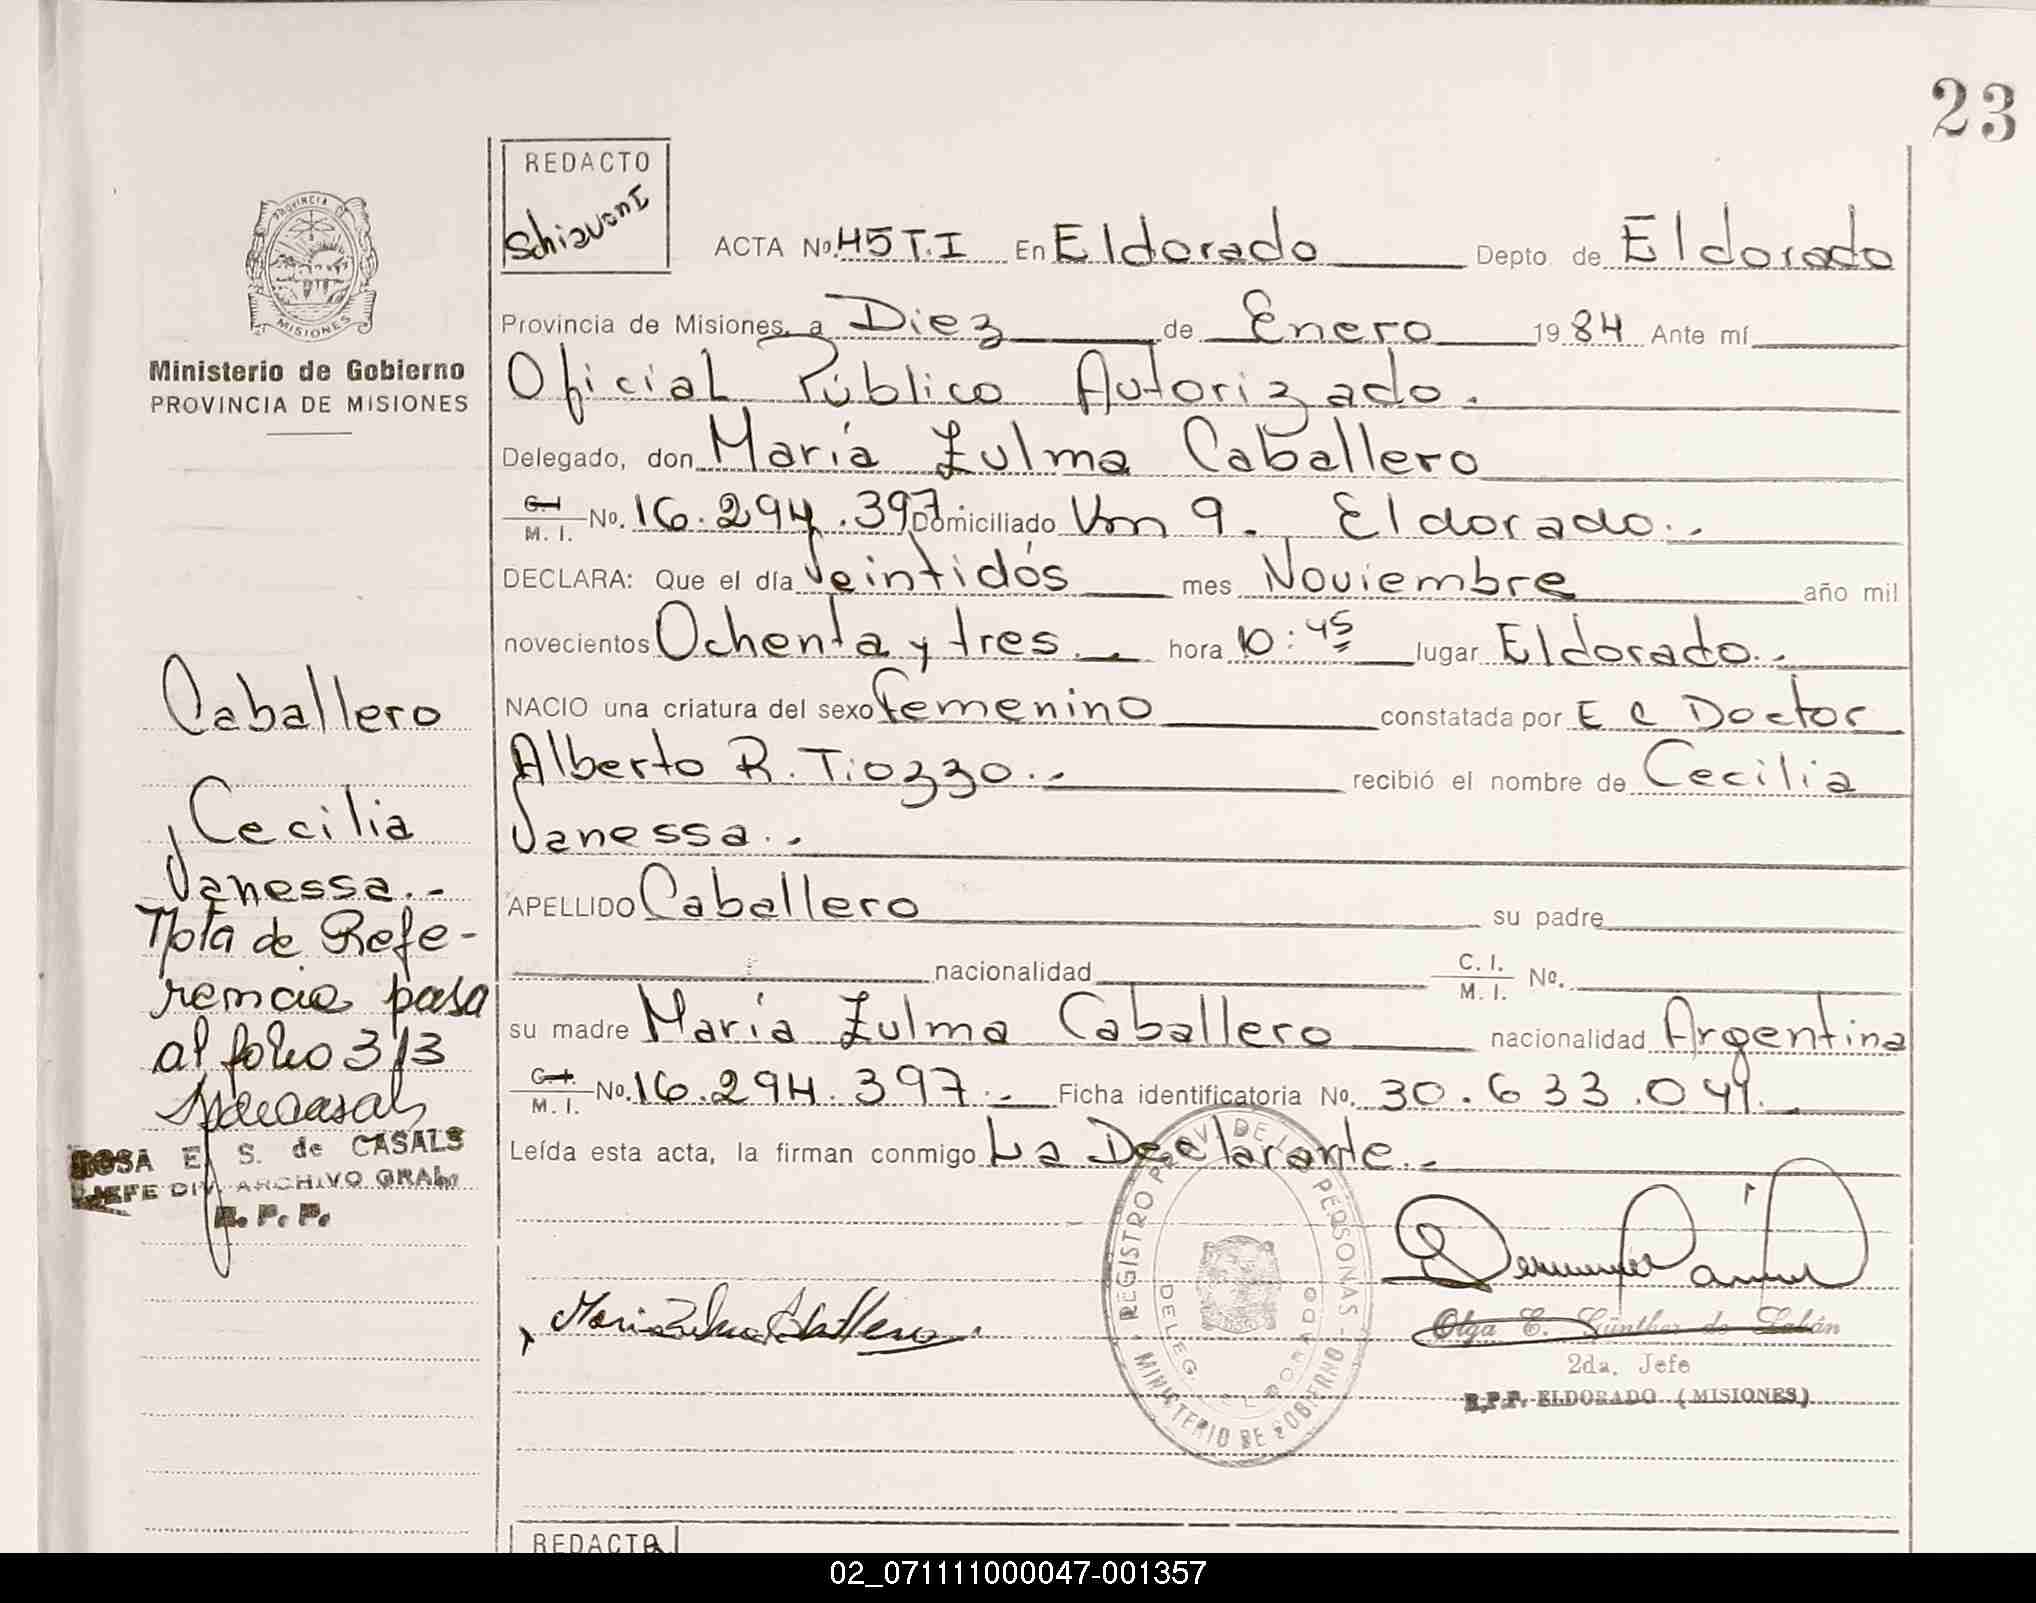 23
REDACTO
Schiavoni
PROVINCIA DE
MISIONES
Ministerio de Gobierno
PROVINCIA DE MISIONES
ACTA No. 45 T.I En Eldorado Depto. de Eldorado
Provincia de Misiones, a Diez de Enero 1984 Ante mí
Oficial Público Autorizado.
Delegado, don María Zulma Caballero
C. I. M. I. No. 16.294.397 Domiciliado Km 9. Eldorado.-
DECLARA: Que el día Veintidós mes Noviembre año mil
novecientos Ochenta y tres.- hora 10:45 lugar Eldorado.-
NACIO una criatura del sexo femenino constatada por El Doctor
Alberto R. Tiozzo.- recibió el nombre de Cecilia
Vanessa.-
APELLIDO Caballero su padre
nacionalidad C. I. M. I. No.
su madre María Zulma Caballero nacionalidad Argentina
C. I. M. I. No. 16.294.397.- Ficha identificatoria No. 30.633.041.-
Leída esta acta, la firman conmigo La Declarante.-
Caballero
, Cecilia
Vanessa.-
Nota de Refe-
rencia pasa
al folio 313
ROSA E. S. de CASALS
JEFE DIV. ARCHIVO GRAL.
R. P. P.
Maria Zulma Caballero
REGISTRO PROV. DE LAS PERSONAS
MINISTERIO DE GOBIERNO
DELEG. ELDORADO
Olga E. Günther de Labán
2da. Jefe
R.P.P. ELDORADO (MISIONES)
REDACTO
02_071111000047-001357